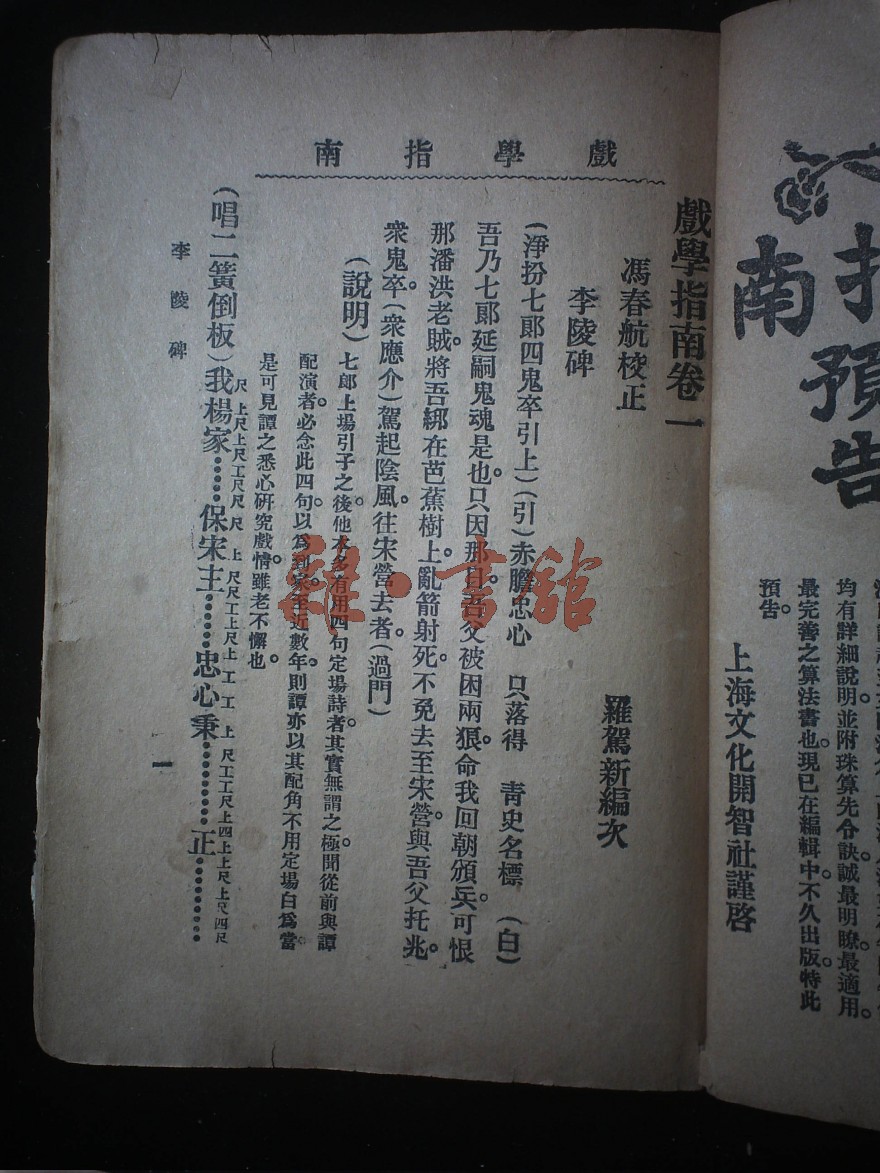 指南預告
均有詳細說明並附珠算先令訣誠最明瞭最適用。
最完善之算法書也。現已在編輯中。不久出版。特此
預告。
上海文化開智社謹啓
戲學指南
戲學指南卷一
馮春航校正
羅駕新編次
李陵碑
(淨扮七郎四鬼卒引上)(引)赤膽忠心 只落得 青史名標 (白)
吾乃七郎延嗣鬼魂是也。只因那日吾父被困兩狼。命我回朝頒兵。可恨
那潘洪老賊。將吾綁在芭蕉樹上。亂箭射死。不免去至宋營。與吾父托兆。
衆鬼卒。(衆應介)駕起陰風。往宋營去者。(過門)
(說明)七郎上場引子之後。他本多有用四句定場詩者。其實無謂之極。聞從前與譚
配演者。必念此四句。以爲到家。至近數年。則譚亦以其配角不用定場白爲當。
是可見譚之悉心硏究戲情。雖老不懈也
尺 上尺上尺工尺尺 上 尺尺工上尺上 工 工 上 尺工工尺上四上上尺上尺四尺
(唱二簧倒板)我楊家⋯⋯保宋主⋯⋯忠心秉⋯⋯⋯正⋯⋯⋯
李陵碑
一
雜·書舘